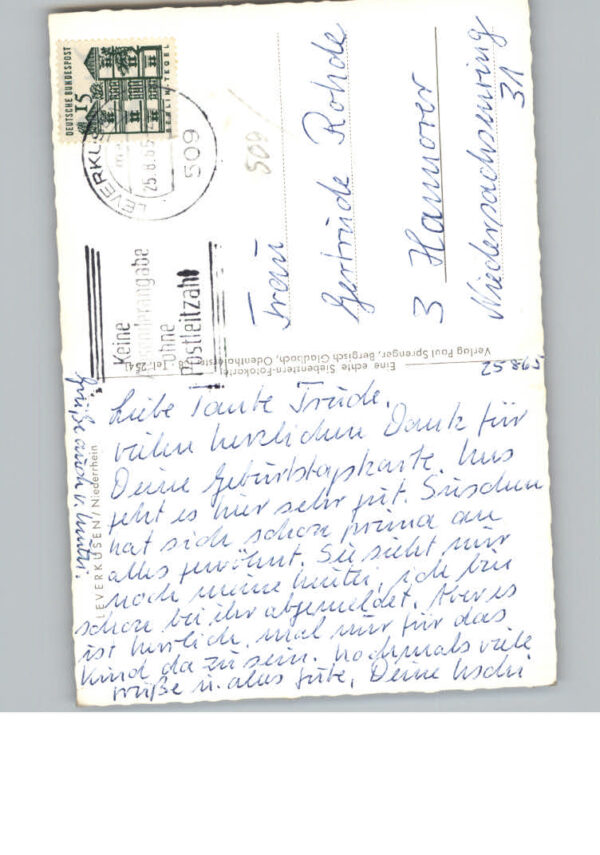 DEUTSCHE BUNDESPOST
15
BERLIN-TEGEL
LEVERKUS
25.8.65
509
509
Keine
ohne
Postleitzahl
Frau
Gertrude Rohde
3 Hannover
Niedersachsenring
31
Eine echte Siebenstern-Fotokarte
Verlag Paul Sprenger, Bergisch Gladbach, Odenthalerstr.
LEVERKUSEN / Niederrhein
25.8.65
Liebe Tante Trude,
vielen herzlichen Dank für
Deine Geburtstagskarte. Uns
geht es hier sehr gut. Suschen
hat sich schon prima an
alles gewöhnt. Sie sieht nur
noch meine Mutti, ich bin
schon bei ihr abgemeldet. Aber es
ist herrlich, mal nur für das
Kind da zu sein. Nochmals viele
Grüße u. alles Gute, Deine Uschi
Grüße auch v. Mutti.